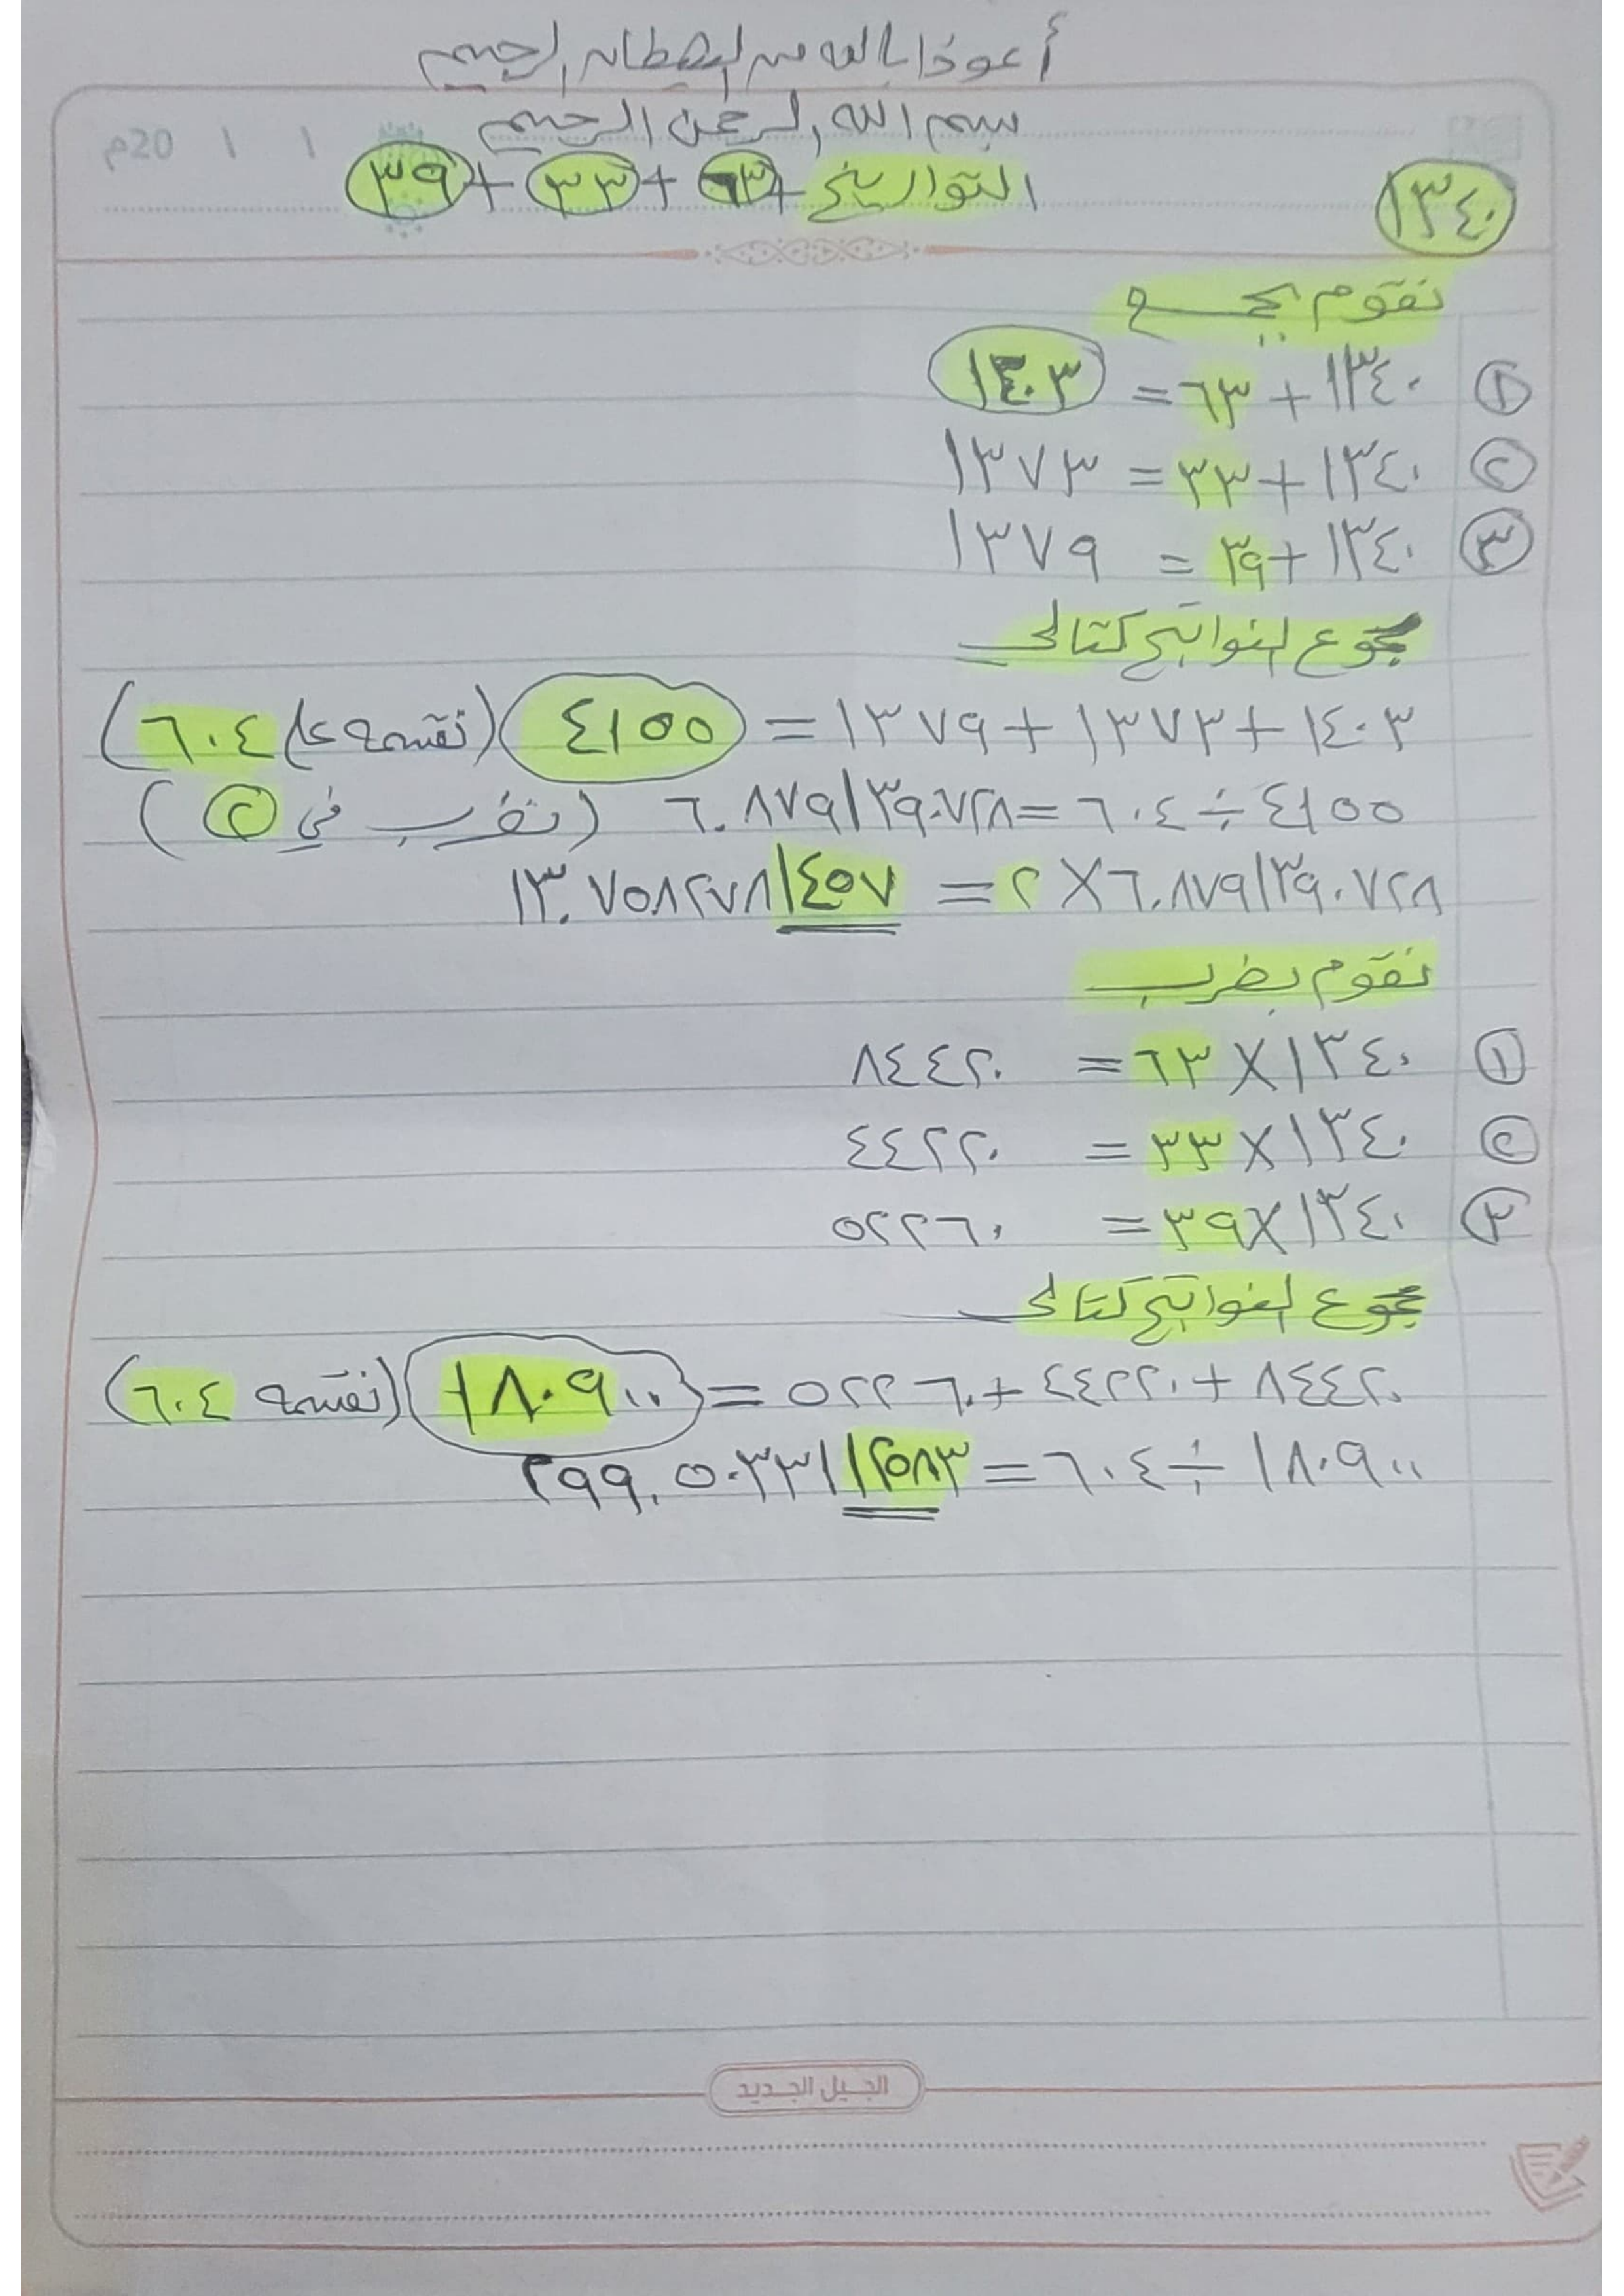 أعوذ بالله من الشيطان الرجيم
بسم الله الرحمن الرحيم
20م / /
١٣٤٠
التواريخ + ٦٣ + ٣٣ + ٣٩
نقوم بجمع
١ ١٣٤٠ + ٦٣ = ١٤٠٣
٢ ١٣٤٠ + ٣٣ = ١٣٧٣
٣ ١٣٤٠ + ٣٩ = ١٣٧٩
مجموع النواتج كتالي
١٤٠٣ + ١٣٧٣ + ١٣٧٩ = ٤١٥٥ (نقسمه على ٦٠٤)
٤١٥٥ ÷ ٦٠٤ = ٦.٨٧٩١٣٩٠٧٢٨ (نضرب في ٢)
٦.٨٧٩١٣٩٠٧٢٨ × ٢ = ١٣.٧٥٨٢٧٨١٤٥٧
نقوم بضرب
١ ١٣٤٠ × ٦٣ = ٨٤٤٢٠
٢ ١٣٤٠ × ٣٣ = ٤٤٢٢٠
٣ ١٣٤٠ × ٣٩ = ٥٢٢٦٠
مجموع النواتج كتالي
٨٤٤٢٠ + ٤٤٢٢٠ + ٥٢٢٦٠ = ١٨٠٩٠٠ (نقسمه ٦٠٤)
١٨٠٩٠٠ ÷ ٦٠٤ = ٢٩٩.٥٠٣٣١١٢٥٨٣
الجيل الجديد